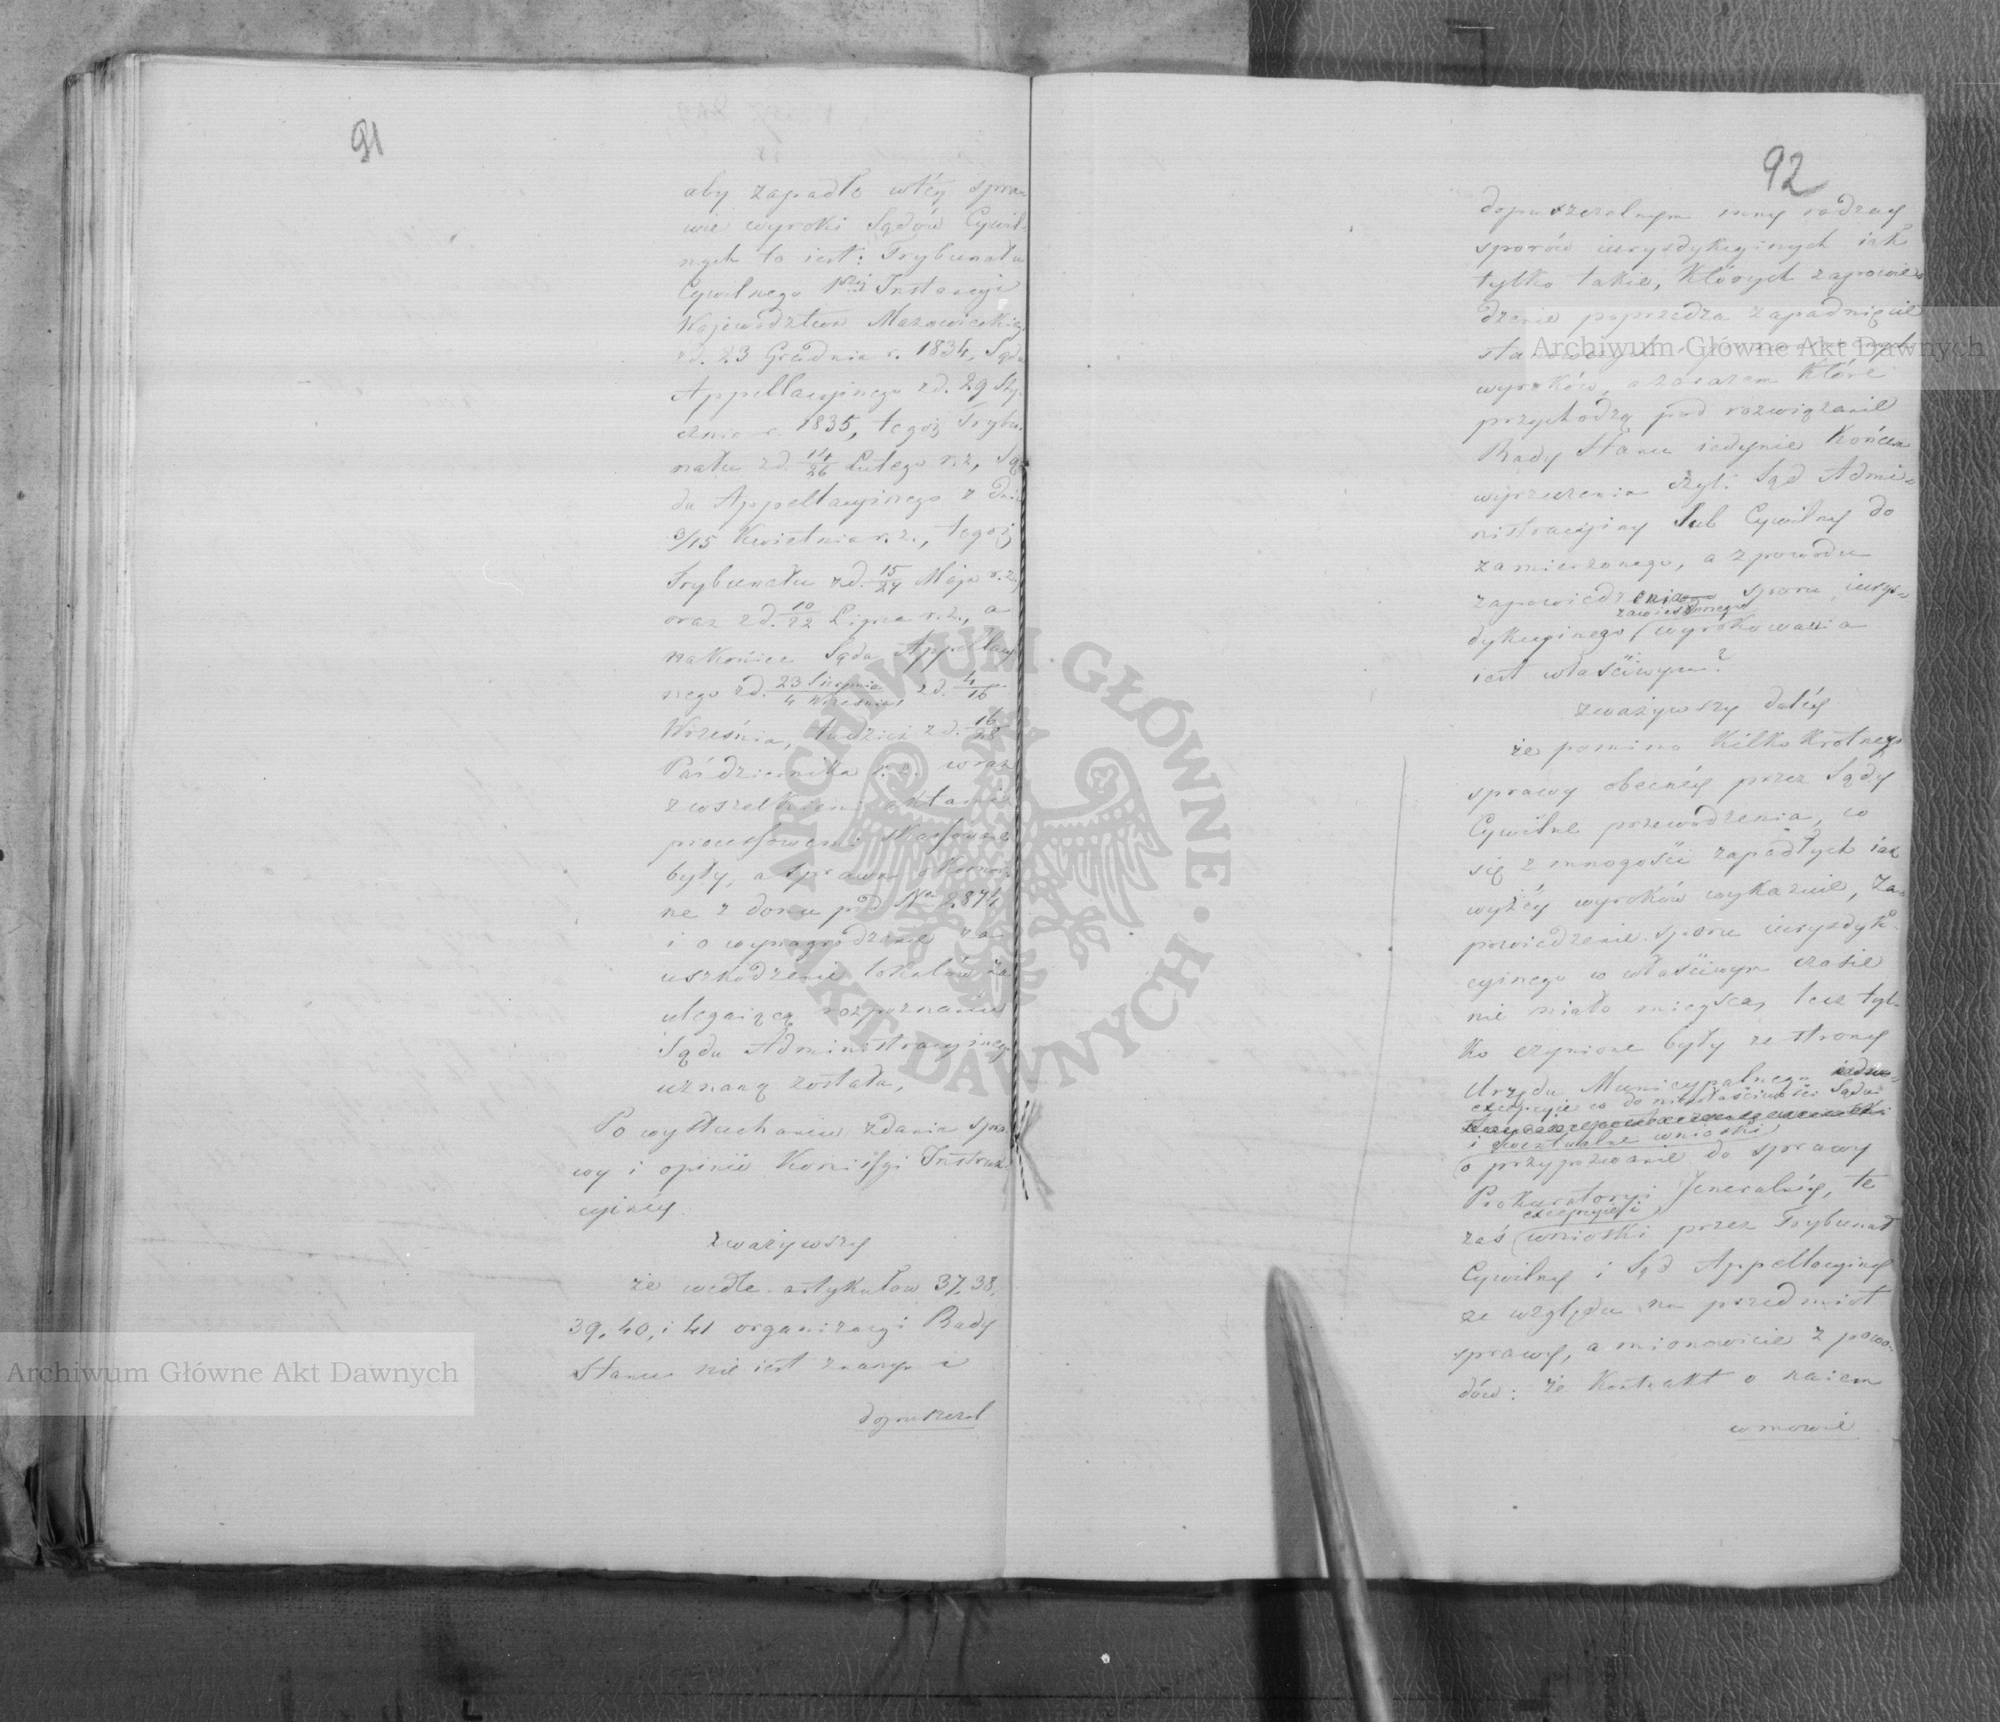 91
aby zapadłe w téy spra-
wie wyroki Sądów Cywil-
nych to iest: Trybunału
Cywilnego 1széj Instancyi
Województwa Mazowieckieg.
z d. 23 Grudnia r. 1834, Sądu
Appellacyjnego z d. 29 Sty-
cznia r. 1835, tegoż Trybu-
nału z d. 14/26 Lutego r. z., Są-
du Appellacyjnego z dnia
3/15 Kwietnia r. z., tegoż
Trybunału z d. 15/27 Maja r. z.,
oraz z d. 10/22 Lipca r. z., a
nakoniec Sądu Appellacyj-
nego z d. 23 Sierpnia/4 Września, z d. 4/16
Września, tudzież z d. 16/28
Października r. z. wraz
z wszelkiemi aktami
processowemi skassowane
były, a sprawa o komor-
ne z domu pod No 2874
i o wynagrodzenie za
uszkodzenie lokalów za
ulegaiącą rozpoznaniu
Sądu Administracyjnego
uznaną została,
Po wysłuchaniu zdania spra-
wy i opinii Komissyi Instruk-
cyjnéy.
zważywszy
że wedle artykułów 37, 38,
39, 40, i 41 organizacyi Rady
Stanu nie iest znanym i
dopuszczal
92
dopuszczalnym inny rodzay
sporów iurysdykcyinych iak
tylko takie, których zapowie-
dzenie poprzedza zapadnięcie
stanowczych
wyroków, a zarazem które
przychodzą pod rozwiązanie
Rady Stanu iedynie końcem
wyrzeczenia czyli Sąd Admi-
nistracyiny lub Cywilny do
zamierzonego, a z powodu
zapowiedzenia sporu iurys-
zawieszonego
dykcyinego wyrokowania
iest właściwym?
zważywszy daléy
że pomimo kilkokrotnego
sprawy obecnéy przez Sądy
Cywilne przewodzenia, co
się z mnogości zapadłych iak
wyżéy wyroków wykazuie, za-
powiedzenie sporu iurysdyk-
cyinego w właściwym czasie
nie miało mieysca, lecz tyl-
ko czynione były ze strony
Urzędu Municypalnego
excepcyie co do niewłaściwości Sądu
i ewentualne wnioski
o przypozwanie do sprawy
Prokuratoryi Jeneralnéy, te
excepcyie i
zaś wnioski przez Trybunał
Cywilny i Sąd Appellacyiny
ze względu na przedmiot
sprawy, a mianowicie z powo-
dów: że kontrakt o naiem
w mowie
Archiwum Główne Akt Dawnych
Archiwum Główne Akt Dawnych
ARCHIWUM GŁÓWNE · AKT DAWNYCH ·